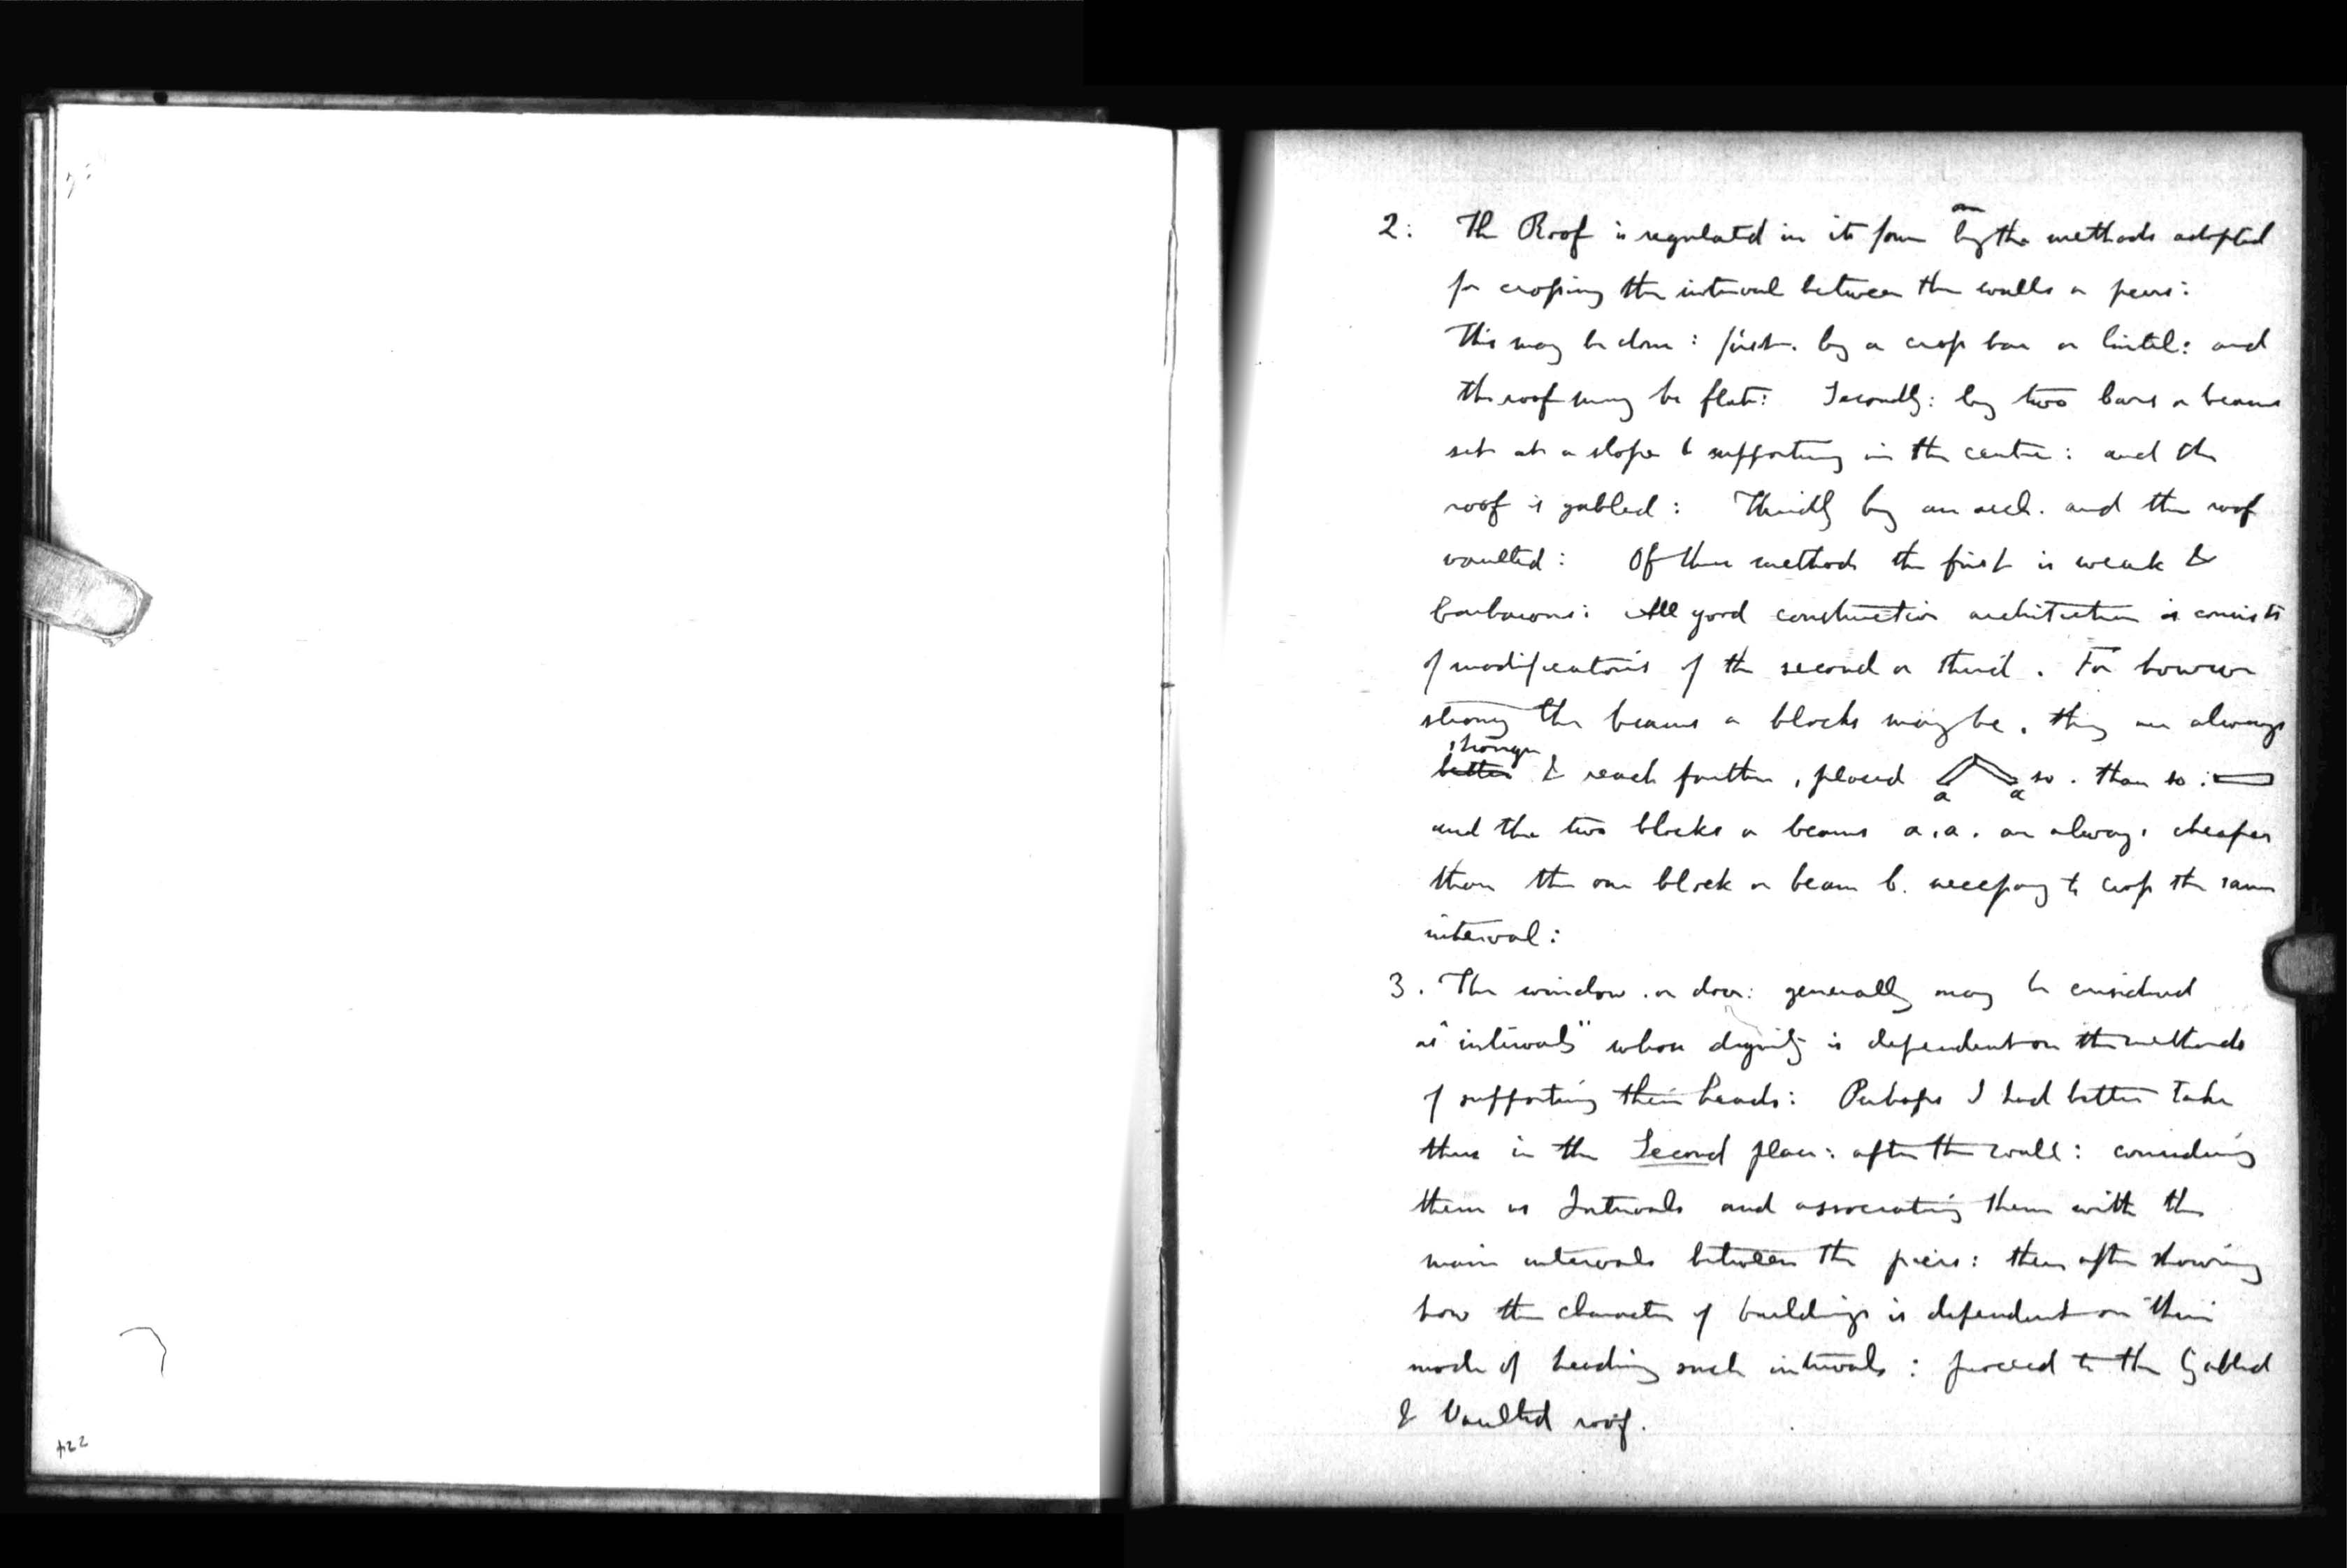 2: The Roof is regulated in its form by the methods adopted
for crossing the interval between the walls or piers:
This may be done: first. by a cross bar or lintel: and
the roof may be flat: Secondly: by two bars or beams
set at a slope & supporting in the centre: and the
roof is gabled: Thirdly by an arch. and the roof
vaulted: Of these methods the first is weak &
barbarous: All good construction architecture is consists
of modifications of the second or third. For however
strong the beams or blocks may be, they are always
stronger
better & reach further, placed so. than so:
a a
and the two blocks or beams a.a. are always cheaper
than the one block or beam b. necessary to cross the same
interval:
3. The window. or door: generally may be considered
as "intervals" whose dignity is dependent on the methods
of supporting their heads: Perhaps I had better take
these in the Second place: after the wall: considering
them as Intervals and associating them with the
main intervals between the piers: then after showing
how the character of buildings is dependent on their
mode of heading such intervals: proceed to the Gabled
& Vaulted roof.